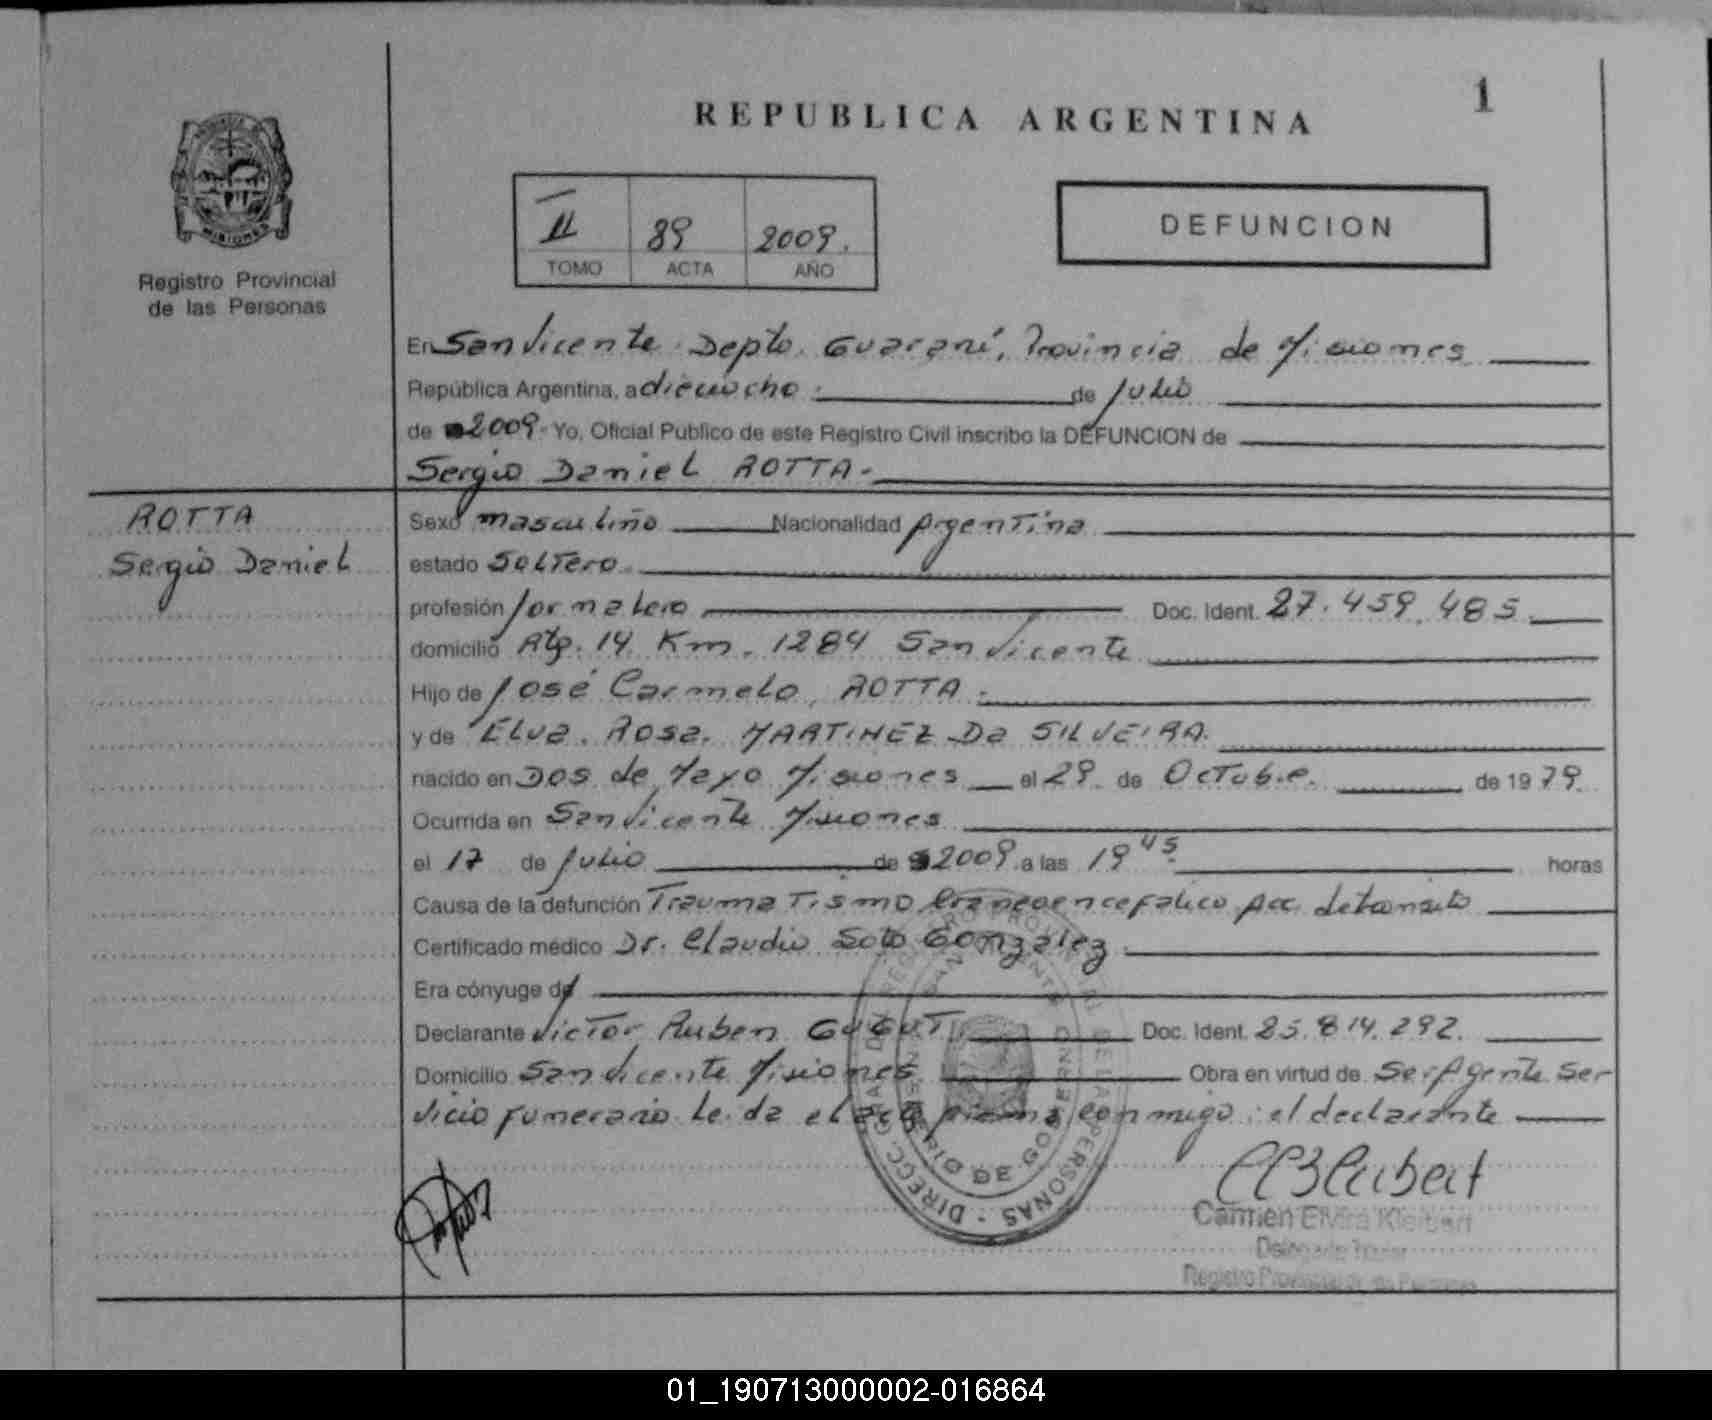 REPUBLICA ARGENTINA
1
MISIONES
Registro Provincial
de las Personas
II 89 2009.
TOMO ACTA AÑO
DEFUNCION
En San Vicente Depto. Guaraní, Provincia de Misiones
República Argentina, a dieciocho. de Julio
de 2009 Yo, Oficial Público de este Registro Civil inscribo la DEFUNCION de
Sergio Daniel ROTTA.
ROTTA
Sergio Daniel
Sexo masculino Nacionalidad Argentina
estado Soltero.
profesión Jornalero Doc. Ident. 27.459.485.
domicilio Rta. 14 Km. 1284 San Vicente
Hijo de José Carmelo ROTTA.
y de Elva. Rosa. MARTINEZ Da SILVEIRA.
nacido en Dos de Mayo Misiones el 29 de Octubre. de 1979.
Ocurrida en San Vicente Misiones
el 17 de Julio de 2009 a las 19 45 horas
Causa de la defunción Traumatismo Craneoencefalico Acc. de transito
Certificado médico Dr. Claudio Soto Gonzalez.
Era cónyuge de
Declarante Victor Ruben Doc. Ident. 25.814.292.
Domicilio San Vicente Misiones Obra en virtud de Ser Agente Ser
vicio funerario Leida el acta firma conmigo: el declarante
DIRECC. GRAL. DEL REGISTRO PROVINCIAL DE LAS PERSONAS
SAN VICENTE
Carmen Elvira Kleibert
Delegada Titular
Registro Provincial de las Personas
01_190713000002-016864